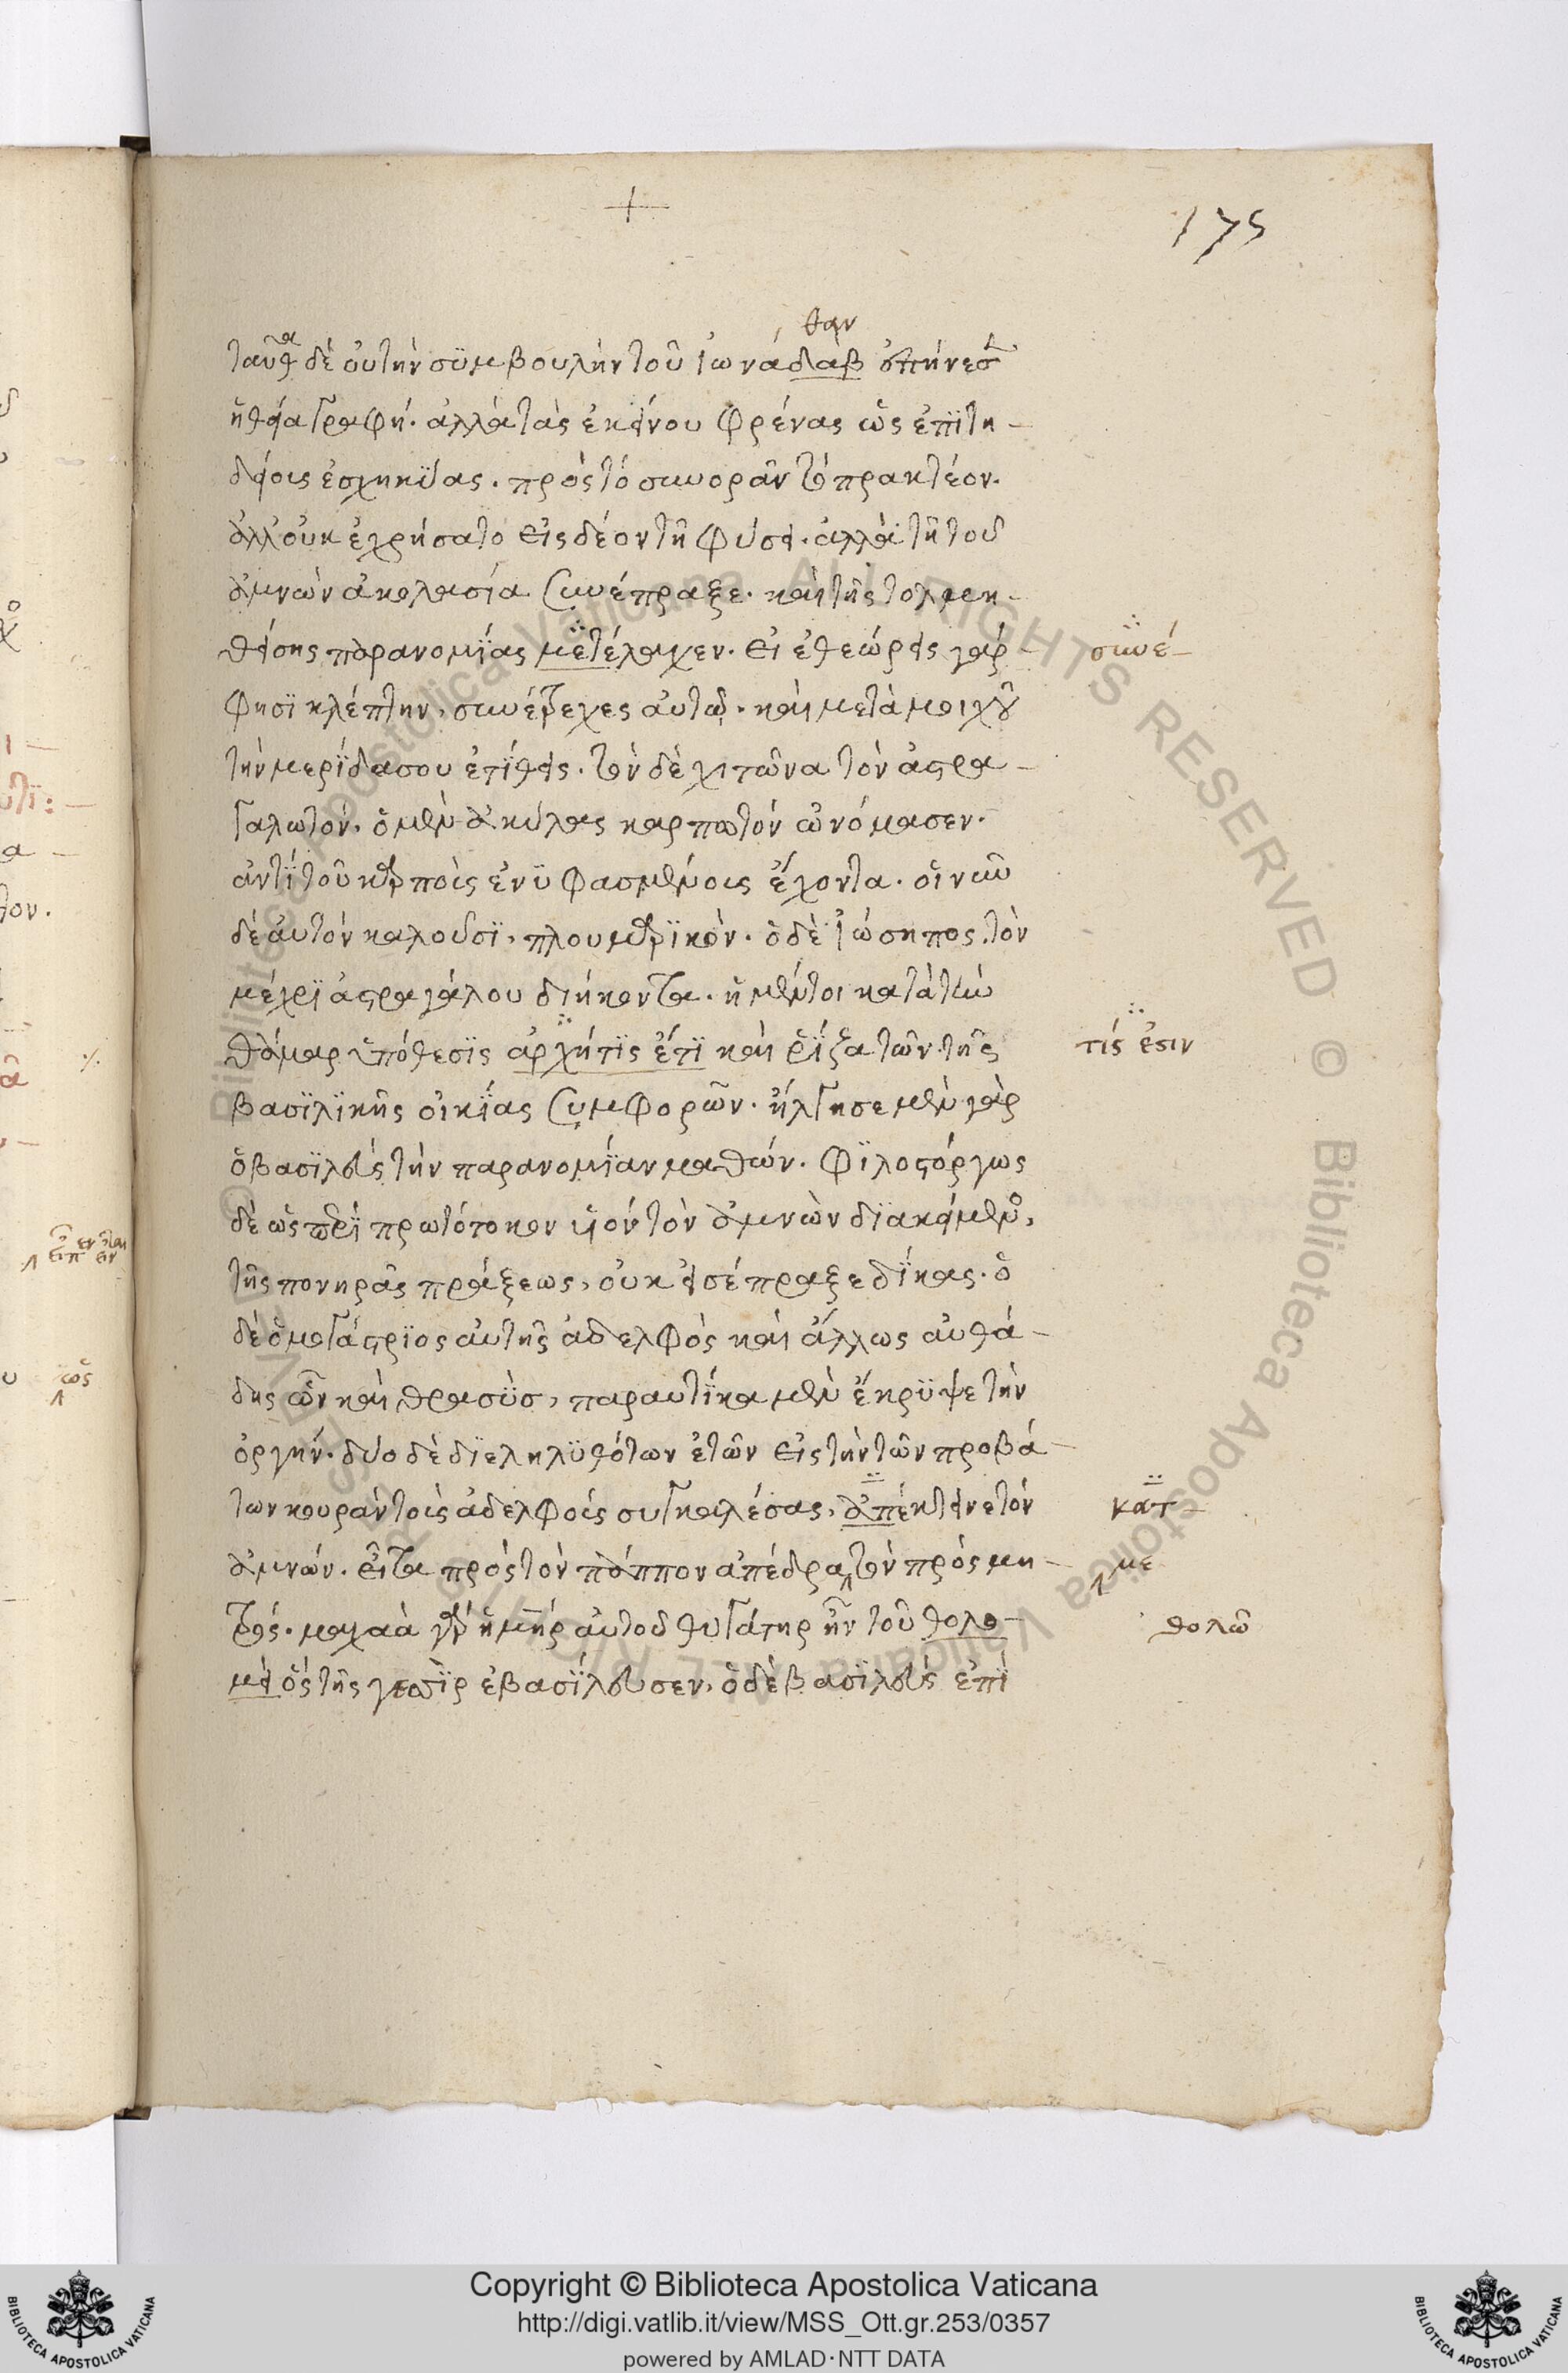 175
θαν
ταῦθα δὲ οὐ τὴν συμβουλὴν τοῦ ἰωνάδαβ ἐπήνεσεν
ἡ θεία γραφή. ἀλλὰ τὰς ἐκείνου φρένας ὡς ἐπιτη-
δείοις ἐσχηκυίας. πρὸς τὸ συνορᾶν τὸ πρακτέον.
ἀλλ' οὐκ ἐχρήσατο εἰς δέον τῆ φύσει. ἀλλὰ τῆ τοῦ
ἀμνὼν ἀκολασία συνέπραξε. καὶ τῆς τολμη-
θείσης παρανομίας μετέλαχεν. εἰ ἐθεώρεις γάρ συνέ-
φησὶ κλέπτην, συνέτρεχες αὐτῷ. καὶ μετὰ μοιχοῦ
τὴν μερίδα σου ἐτίθεις. τὸν δὲ χιτῶνα τὸν ἀστρα-
γαλωτόν. ὁ μὲν ἀκύλας καρπωτόν ὠνόμασεν.
ἀντὶ τοῦ καρποὺς ἐνυφασμένους ἔχοντα. οἱ νῦν
δὲ αὐτὸν καλοῦσι, πλουμαρικόν. ὁ δὲ ἰώσηπος. τὸν
μέχρι ἀστραγάλου διήκοντα. ἡ μέντοι κατὰ τὴν
θάμαρ ὑπόθεσις ἀρχήτις ἐτὶ καὶ ῥίζα τῶν τῆς τίς ἐστιν
βασιλικῆς οἰκίας συμφορῶν. ἤλγησε μὲν γὰρ
ὁ βασιλεὺς τὴν παρανομίαν μαθών. φιλοστόργως
δὲ ὡς περὶ πρωτότοκον υἱὸν τὸν ἀμνὼν διακείμενος,
τῆς πονηρᾶς πράξεως, οὐκ εἰσέπραξε δίκας. ὁ
δὲ ὁμογάστριος αὐτῆς ἀδελφὸς καὶ ἄλλως αὐθά-
δης ὢν καὶ θρασὺς, παραυτίκα μὲν ἔκρυψε τὴν
ὀργήν. δύο δὲ διεληλυθότων ἐτῶν εἰς τὴν τῶν προβά-
των κουρὰν τοὺς ἀδελφοὺς συγκαλέσας, ἀπέκτεινε τὸν κατ-
ἀμνών. εἶτα πρὸς τὸν πάππον ἀπέδρα τὸν πρὸς μη- με
τρός. μαχαὰ γὰρ ἡ μήτηρ αὐτοῦ θυγάτηρ ἦν τοῦ θολο- θολῶ
μεὶ ὃς τῆς γεσὶρ ἐβασίλευσεν, ὁ δὲ βασιλεὺς ἐπὶ
Copyright © Biblioteca Apostolica Vaticana
http://digi.vatlib.it/view/MSS_Ott.gr.253/0357
powered by AMLAD·NTT DATA